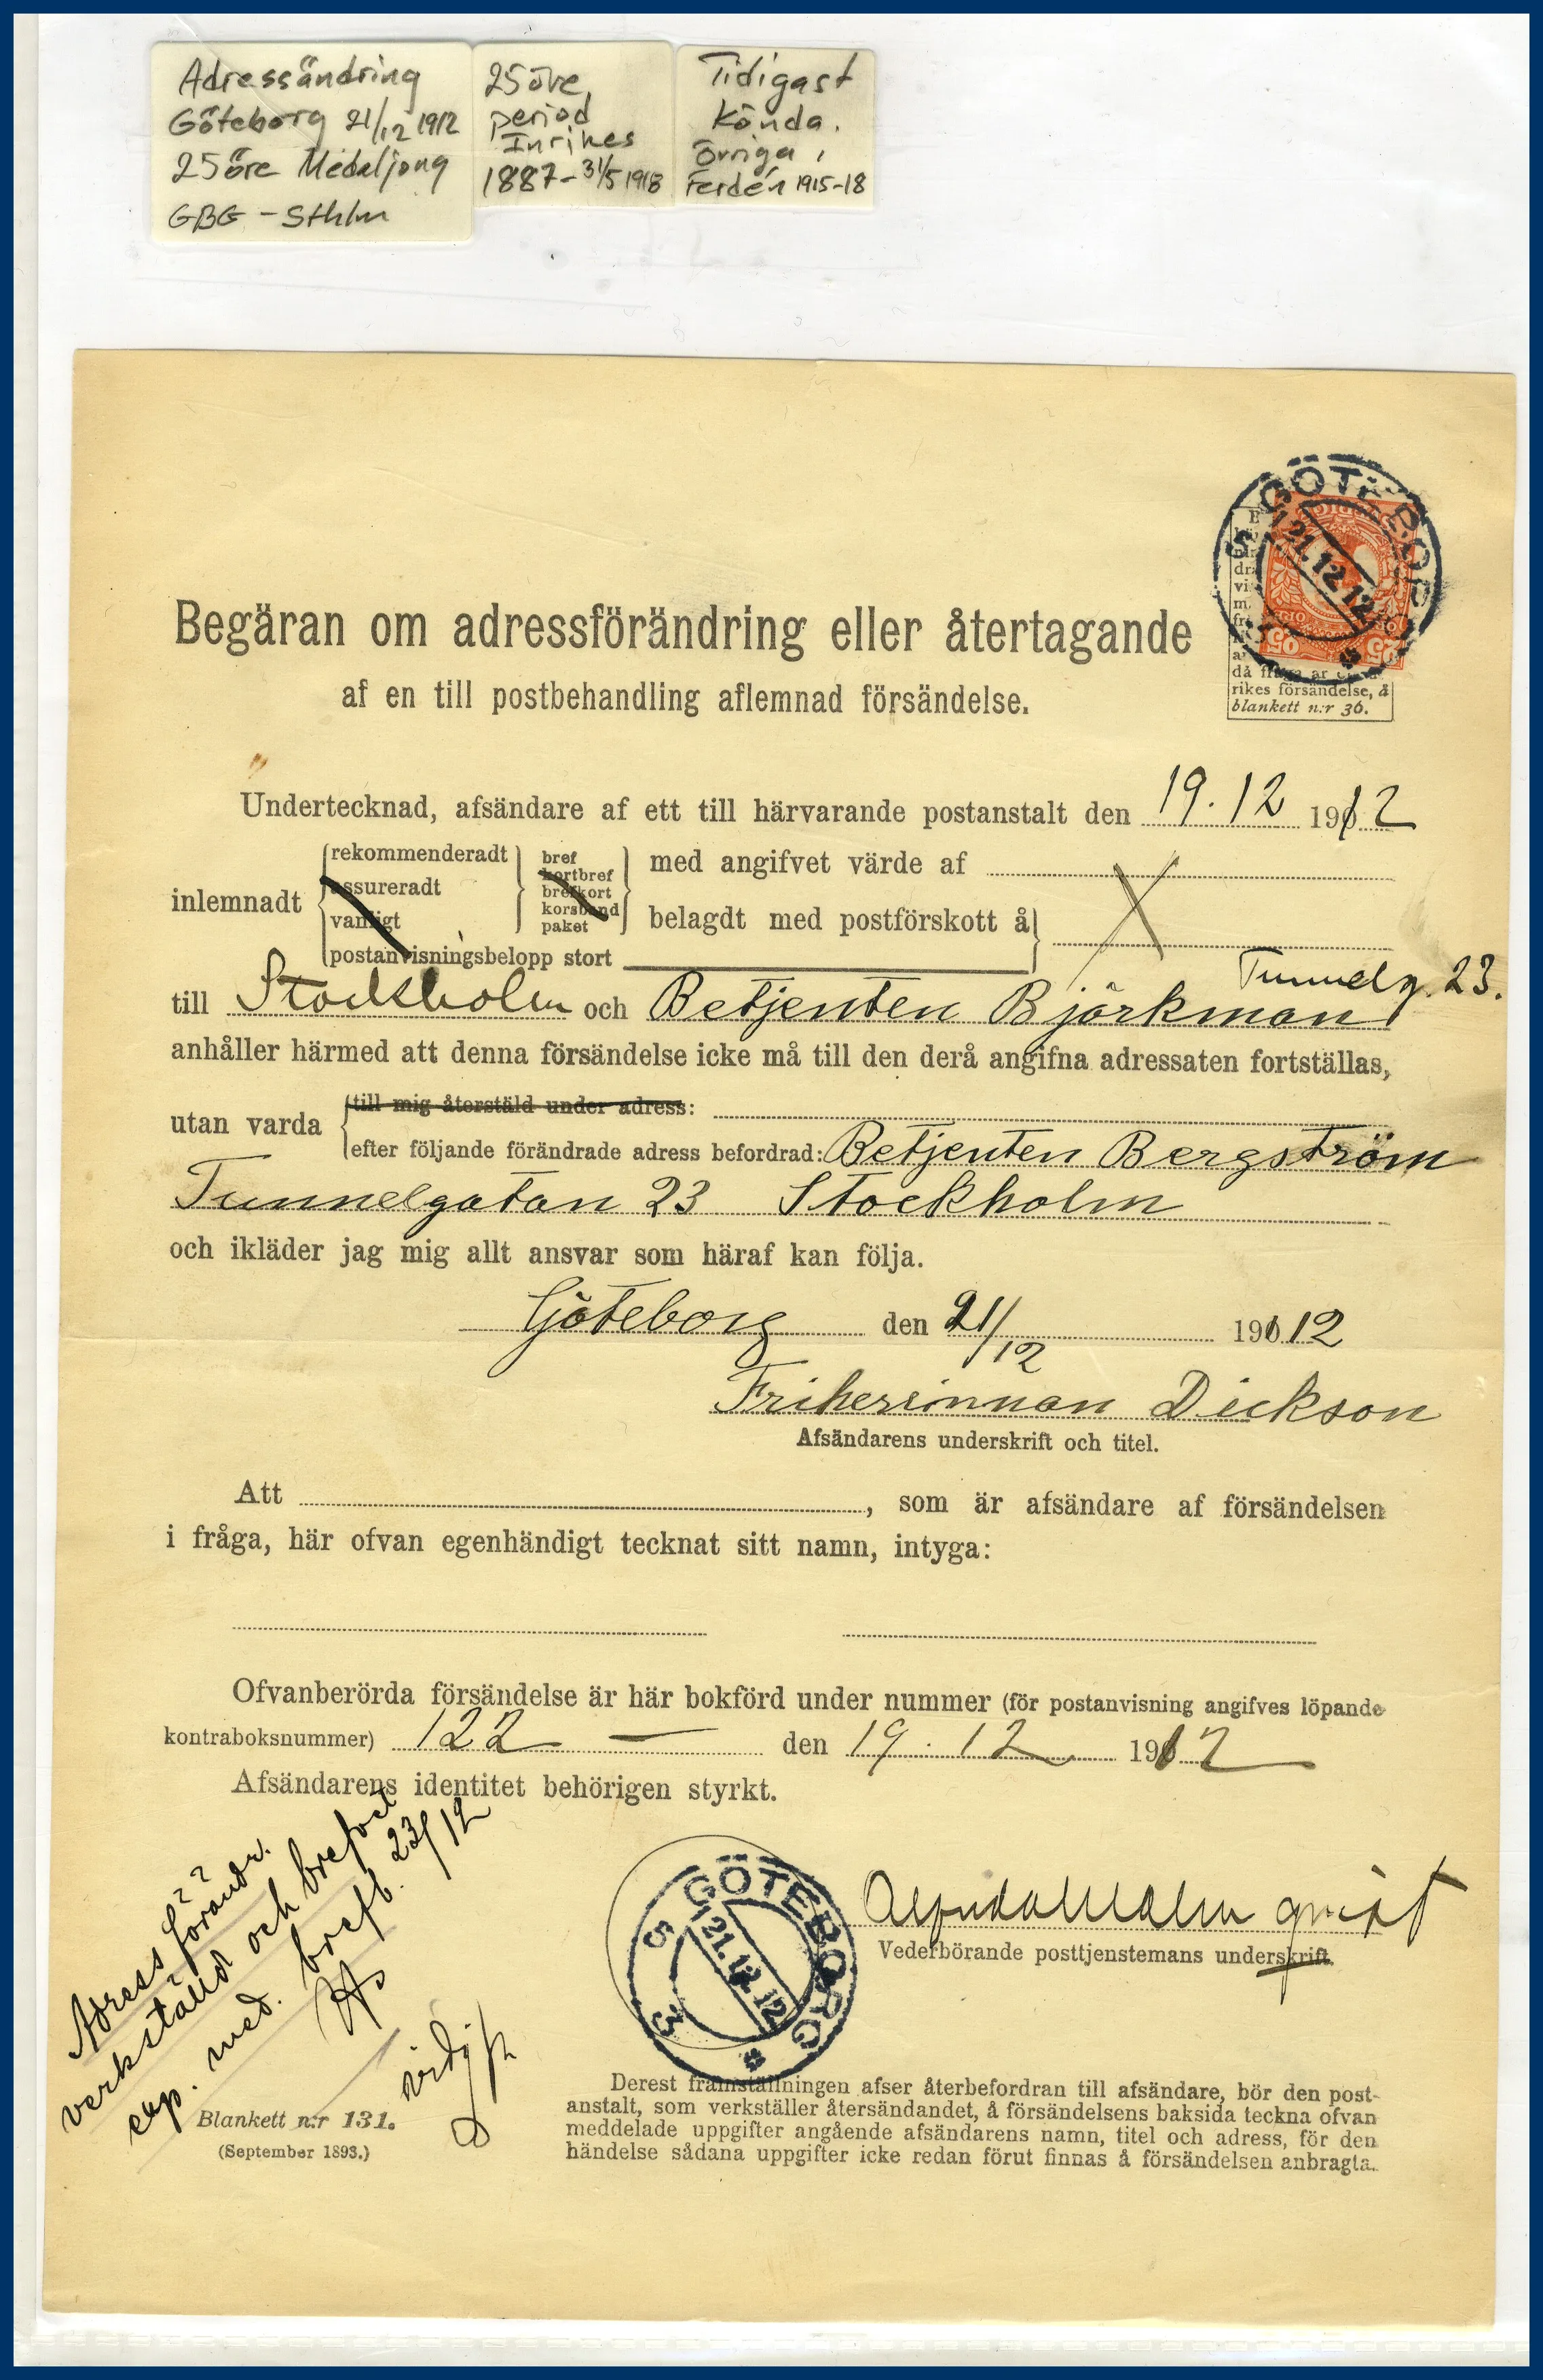 Adressändring
Göteborg 21/12 1912
25 öre Medaljong
GBG - Sthlm
25 öre
period
Inrikes
1887-31/5 1918
Tidigast
kända.
Övriga i
Ferdén 1915-18
GÖTEBORG
21.12.12
25
25
då fråga är
rikes försändelse, å
blankett n:r 36.
Begäran om adressförändring eller återtagande
af en till postbehandling aflemnad försändelse.
Undertecknad, afsändare af ett till härvarande postanstalt den 19.12 1912
inlemnadt
rekommenderadt
assureradt
vanligt
postanvisningsbelopp stort
bref
kortbref
brefkort
korsband
paket
med angifvet värde af
belagdt med postförskott å
Tunnelg. 23.
till Stockholm och Betjenten Björkman
anhåller härmed att denna försändelse icke må till den derå angifna adressaten fortställas,
utan varda
till mig återstäld under adress:
efter följande förändrade adress befordrad: Betjenten Bergström
Tunnelgatan 23 Stockholm
och ikläder jag mig allt ansvar som häraf kan följa.
Göteborg den 21/12 1912
Friherrinnan Dickson
Afsändarens underskrift och titel.
Att , som är afsändare af försändelsen
i fråga, här ofvan egenhändigt tecknat sitt namn, intyga:
Ofvanberörda försändelse är här bokförd under nummer (för postanvisning angifves löpande
kontraboksnummer) 122 — den 19.12 1912
Afsändarens identitet behörigen styrkt.
Adressförändr.
verkställd och brefvet
exp. med. brefb. 23/12
GÖTEBORG
5 3
21.12.12
Vederbörande posttjenstemans underskrift.
Blankett n:r 131.
(September 1893.)
Derest framställningen afser återbefordran till afsändare, bör den post-
anstalt, som verkställer återsändandet, å försändelsens baksida teckna ofvan
meddelade uppgifter angående afsändarens namn, titel och adress, för den
händelse sådana uppgifter icke redan förut finnas å försändelsen anbragta.